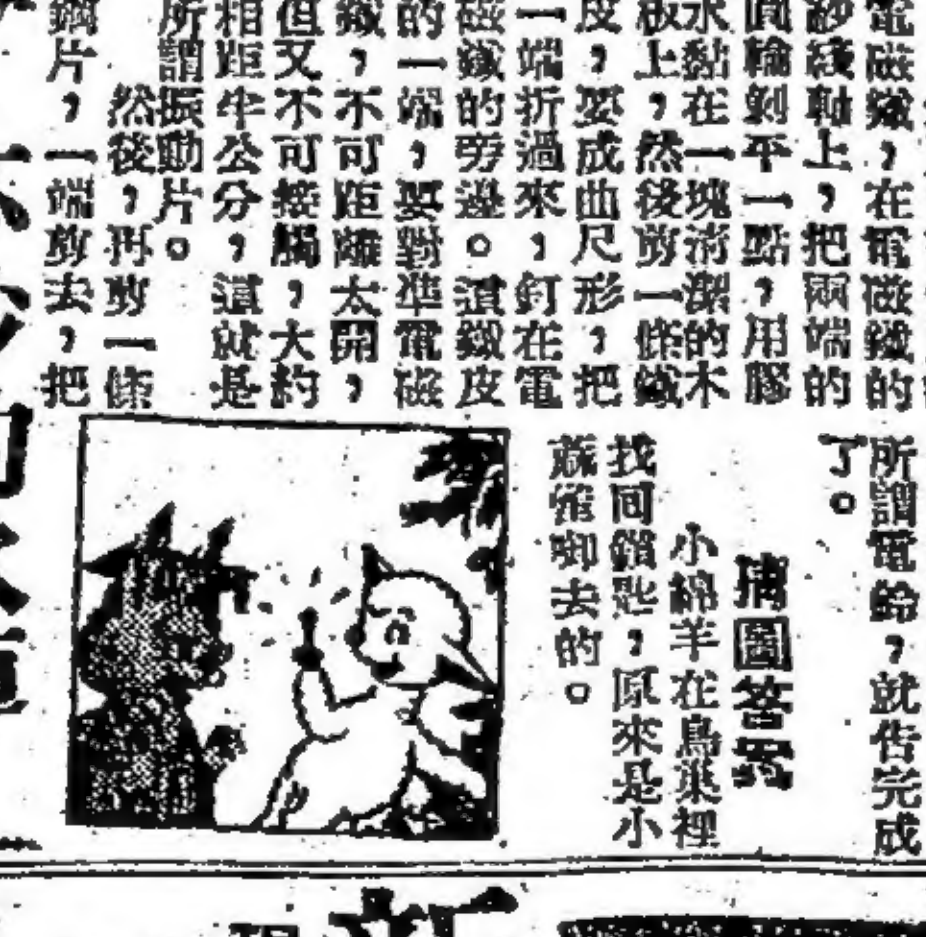 電磁鐵,在電磁鐵的
紗綫軸上,把兩端的
圓輪剝平一點,用膠
水黏在一塊清潔的木
板上,然後剪一條鐵
皮,要成曲尺形,把
一端折過來,釘在電
磁鐵的旁邊。這鐵皮
的一端,要對準電磁
鐵,不可距離太開,
但又不可接觸,大約
相距半公分,這就是
所謂振動片。
然後,再剪一條
鋼片,一端剪去,把
所謂電鈴,就告完成
了。
圖答案
小綿羊在鳥巢裡
找回鎖匙,原來是小
雀啣去的。